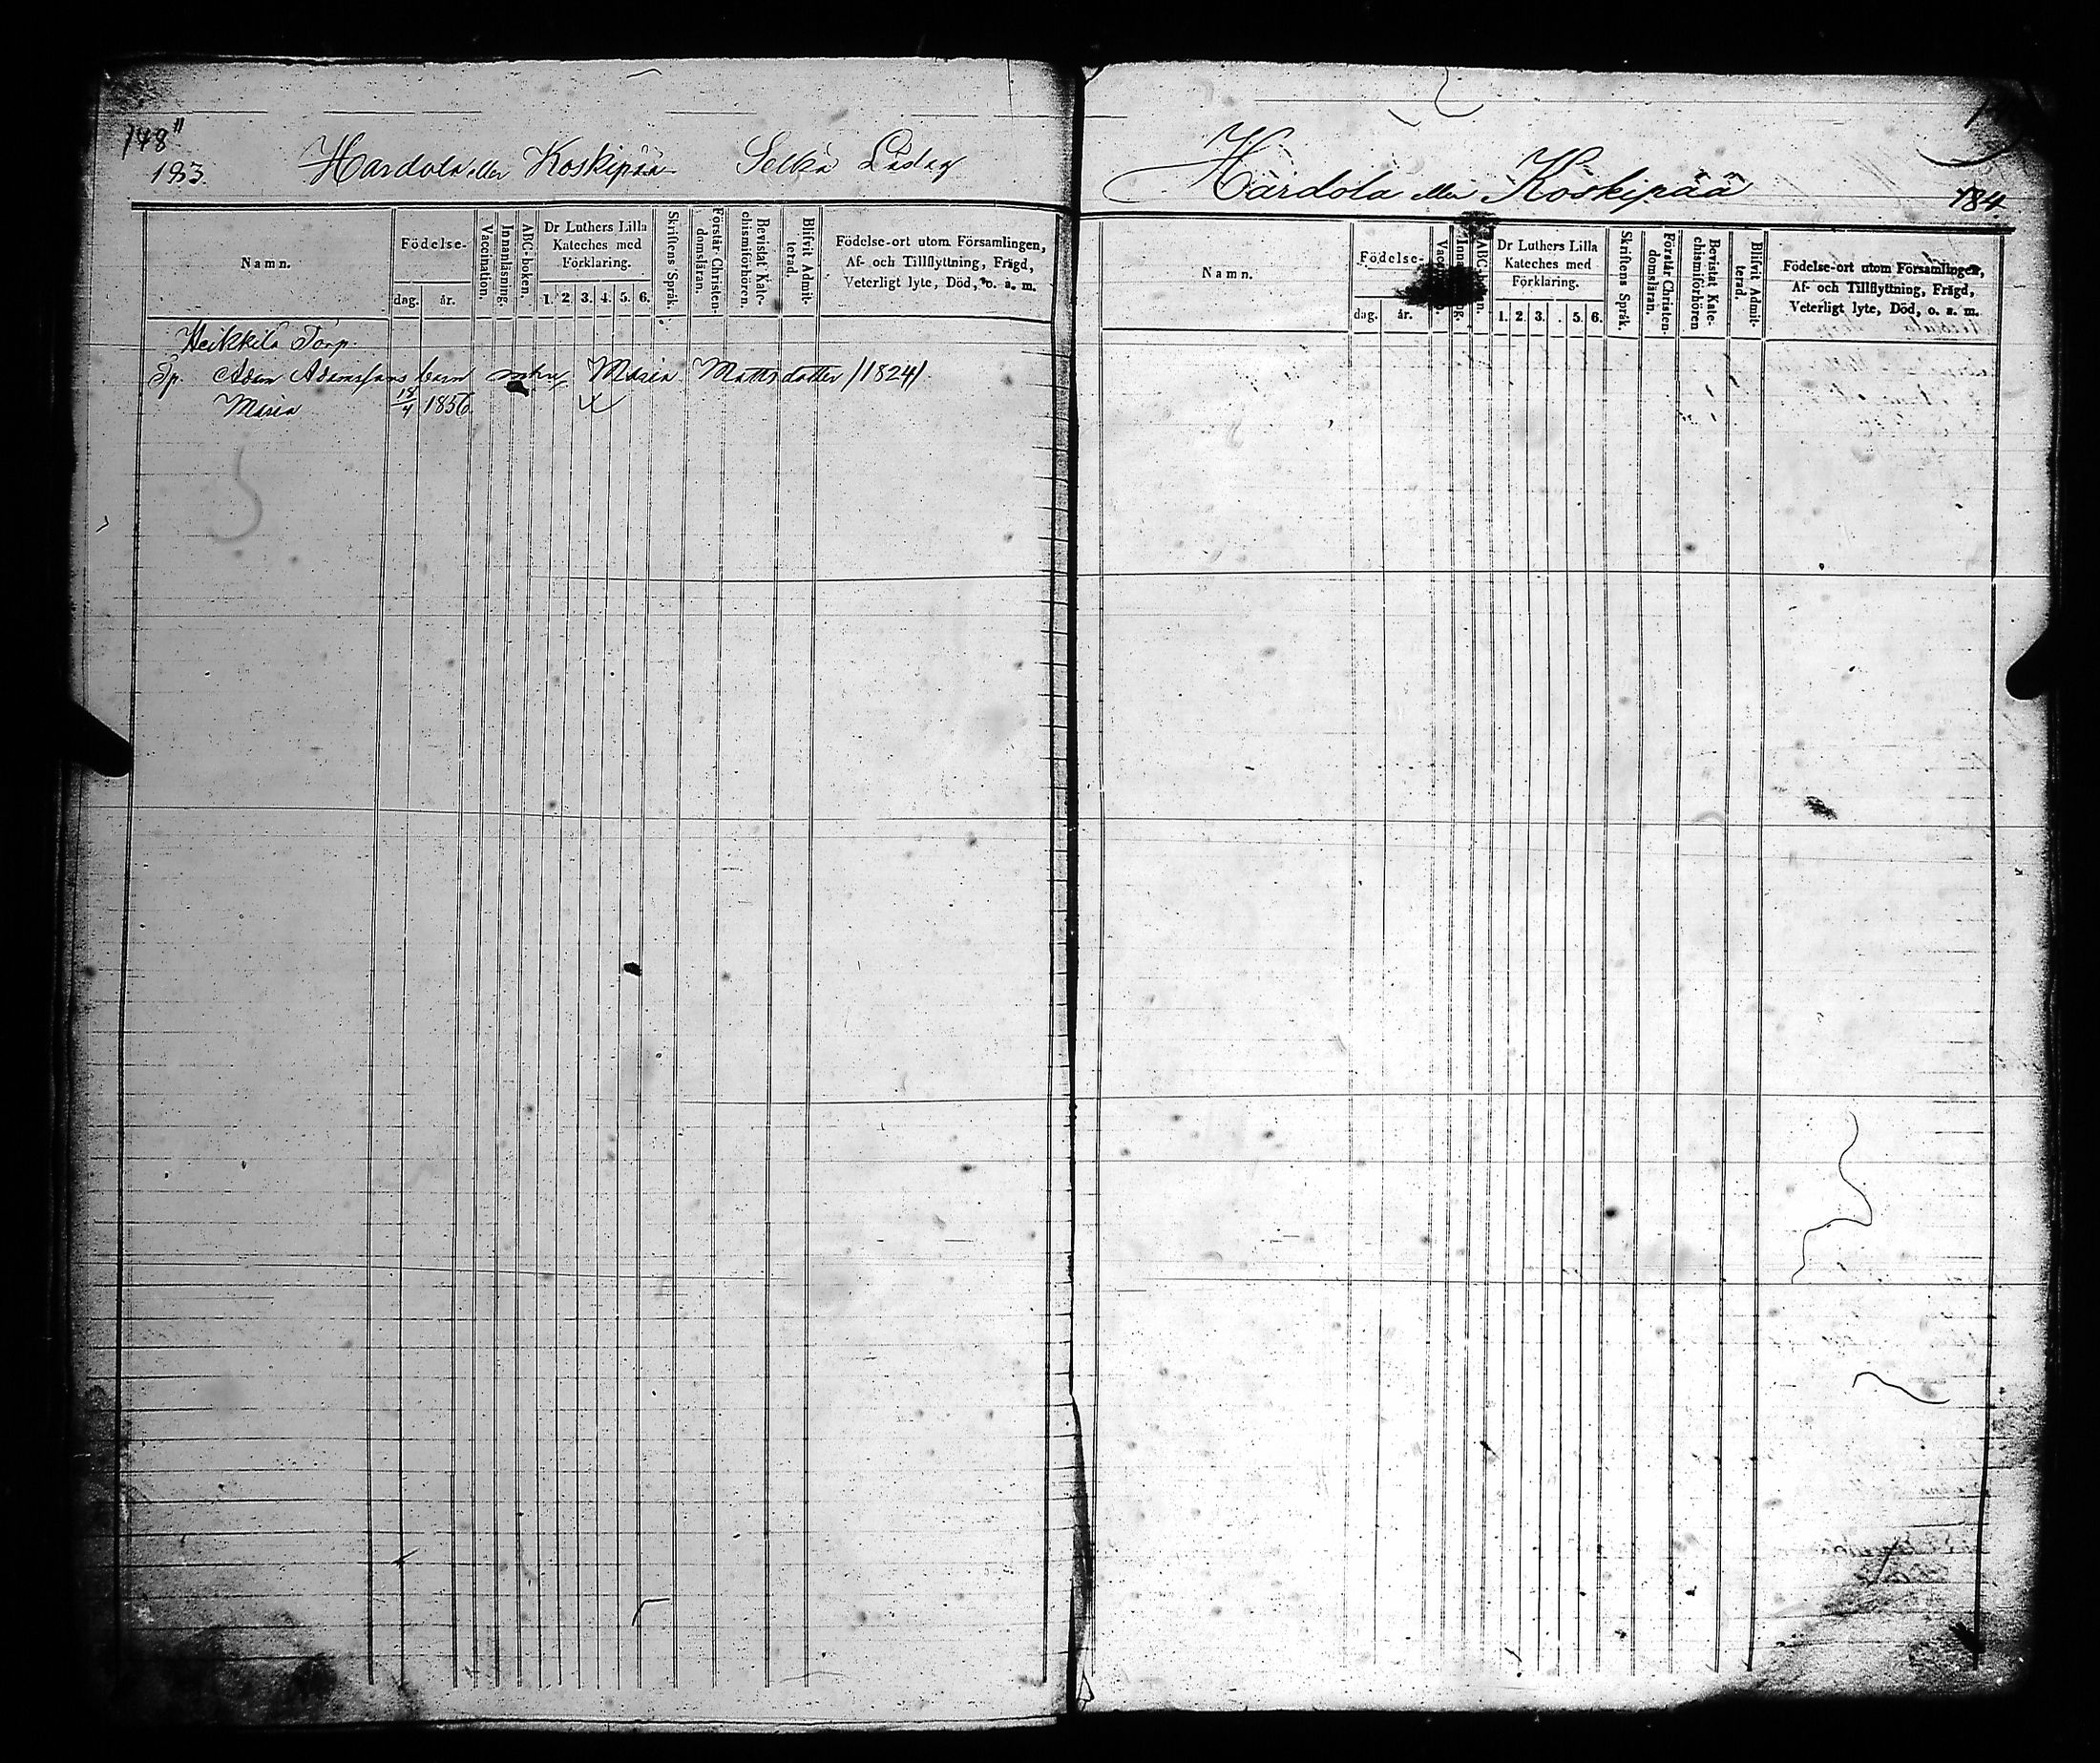 148
183. Hardola eller Koskipää Selkä Lädag
Namn.
Födelse-
dag. år.
Vaccination.
Innanläsning.
ABC-boken.
Dr Luthers Lilla
Kateches med
Förklaring.
1. 2. 3. 4. 5. 6.
Skriftens Språk.
Förstår Christen-
domsläran.
Bevistat Kate-
chismiförhören.
Blifvit Admit-
terad.
Födelse-ort utom Församlingen,
Af- och Tillflyttning, Frägd,
Veterligt lyte, Död, o. a. m.
Heikkilä Torp.
Tp. Adam Adamssons barn Maria Mattsdotter /1824/
Maria 18/4 1856
Härdola eller Koskipää 184.
Namn.
Födelse-
dag. år.
Dr Luthers Lilla
Kateches med
Förklaring.
1. 2. 3. . 5. 6.
Skriftens Språk.
Förstår Christen-
domsläran.
Bevistat Kate-
chismiförhören
Blifvit Admit-
terad.
Födelse-ort utom Församlingen,
Af- och Tillflyttning, Frägd,
Veterligt lyte, Död, o. a. m.